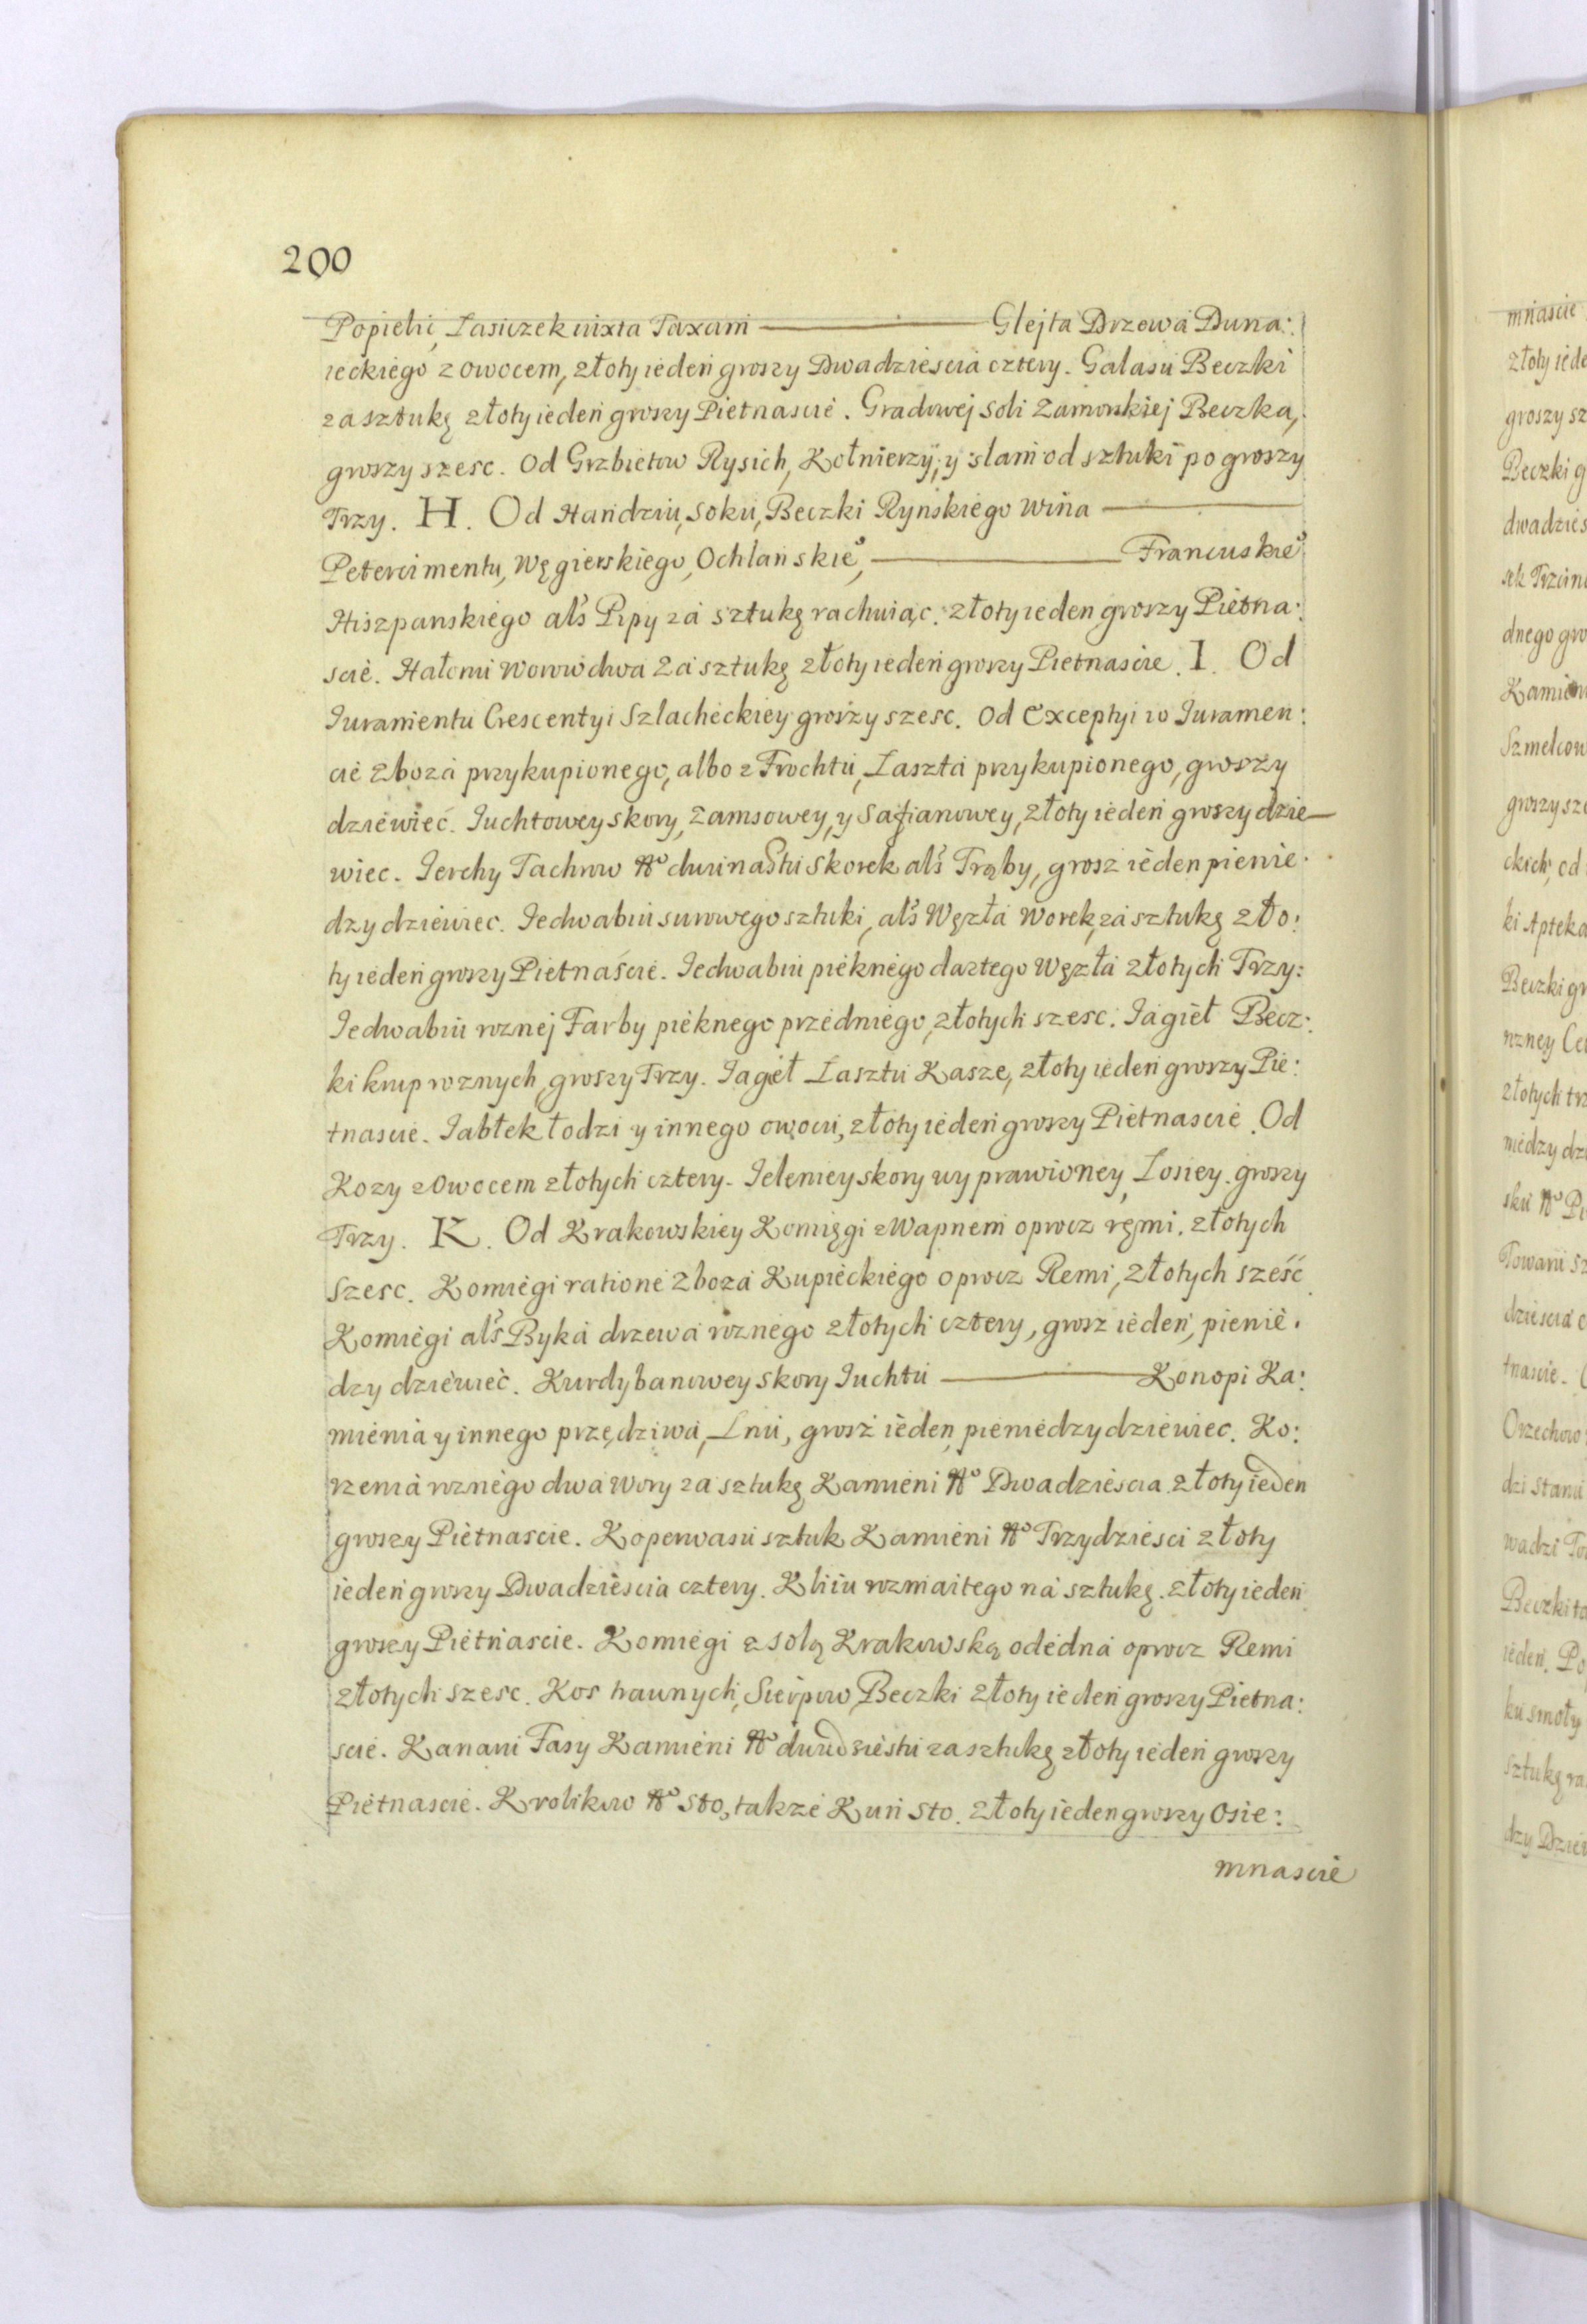 200
Popielic, Lasiczek iuxta Taxam — Glejta Drzewa Duna:
ieckiego z owocem, złoty ieden groszy Dwadziescia cztery. Galasu Beczki
za sztukę złoty ieden groszy Pietnascie. Gradowej soli Zamorskiej Beczka,
groszy szesc. Od Grzbietow Rysich, Kołnierzy, y slam od sztuki po groszy
Trzy. H. Od Handziu, soku, Beczki Rynskiego wina —
Petercimentu, Węgierskiego, Ochlanskieo, — Francuskieo
Hiszpanskiego als Pipy za sztukę rachuiąc. złoty ieden groszy Pietna:
scie. Hałunu Worow dwa za sztukę złoty ieden groszy Pietnascie. I. Od
Iuramentu Crescentyi Szlacheckiey groszy szesc. Od Exceptyi w Iuramen:
cie zboza przykupionego, albo z Frochtu, Laszta przykupionego, groszy
dziewieć. Iuchtowey skory, Zamsowey, y Safianowey, złoty ieden groszy dzie—
wiec. Ierchy Tachrow No dwunastu skorek als Trąby, grosz ieden pienie:
dzy dziewiec. Iedwabiu surowego sztuki, als Węzła Worek, za sztukę zło:
ty ieden groszy Pietnaście. Iedwabiu pieknego dartego Węzła złotych Trzy:
Iedwabiu roznej Farby pieknego przedniego, złotych szesc. Iagieł Becz:
ki krup roznych, groszy Trzy. Iagieł Lasztu Kasze, złoty ieden groszy Pie:
tnascie. Iabłek łodzi y innego owocu, złoty ieden groszy Pietnascie. Od
Kozy z Owocem złotych cztery. Ieleniey skory wyprawioney, Losiey. groszy
Trzy. K. Od Krakowskiey Komięgi z Wapnem oprocz ręmi. złotych
szesc. Komiegi ratione zboza Kupieckiego oprocz Remi, złotych sześć.
Komiegi als Byka drzewa roznego złotych cztery, grosz ieden, pienie:
dzy dziewieć. Kurdybanowey skory Iuchtu — Konopi Ka:
mienia y innego przędziwa, Lnu, grosz ieden pieniedzy dziewiec. Ko:
rzenia roznego dwa wory za sztukę Kamieni No Dwadziescia. złoty ieden
groszy Pietnascie. Koperwasu sztuk Kamieni No Trzydziesci złoty
ieden groszy Dwadziescia cztery. Kliiu rozmaitego na sztukę. złoty ieden
groszy Pietnascie. Komiegi z solą Krakowską od edna oprocz Remi
złotych szesc. Kos trawnych, Sierpow, Beczki złoty ieden groszy Pietna:
scie. Kanaru Fasy Kamieni No dwudziestu za sztukę złoty ieden groszy
Pietnascie. Krolikow No sto, takze Kun sto. złoty ieden groszy Osie:
mnascie
mnascie
złoty iede
groszy sz
Beczki g
dwadzies
dnego gro
Kamien
Szmelcow
groszy sze
ckich, od
ki Apteka
Beczki gr
złotych trz
sku No Pi
dziescia c
tnascie.
Orzechow
Beczki
ieden. Po
ku smoły
sztukę ra
dzy Dzie